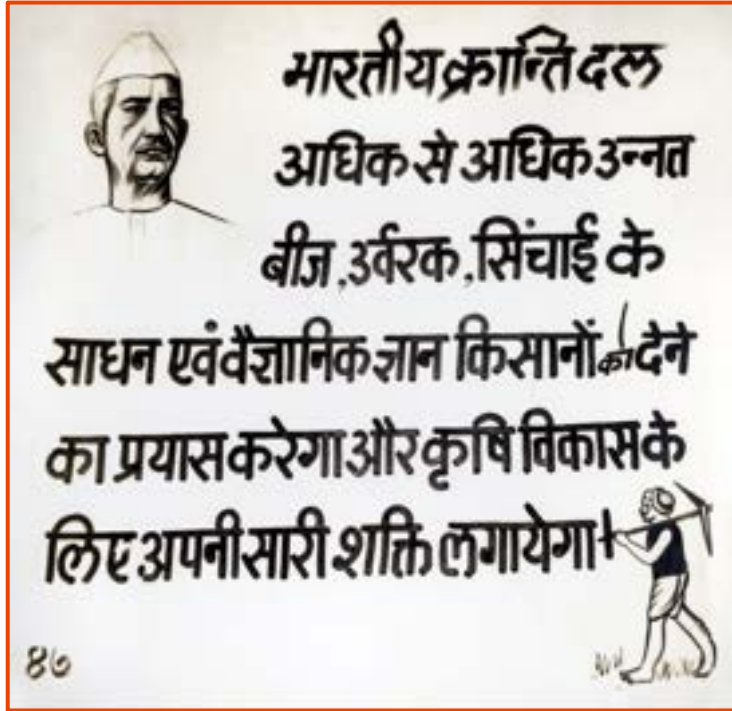 भारतीय क्रान्ति दल
अधिक से अधिक उन्नत
बीज, उर्वरक, सिंचाई के
साधन एवं वैज्ञानिक ज्ञान किसानों को देने
का प्रयास करेगा और कृषि विकास के
लिए अपनी सारी शक्ति लगायेगा।
४७